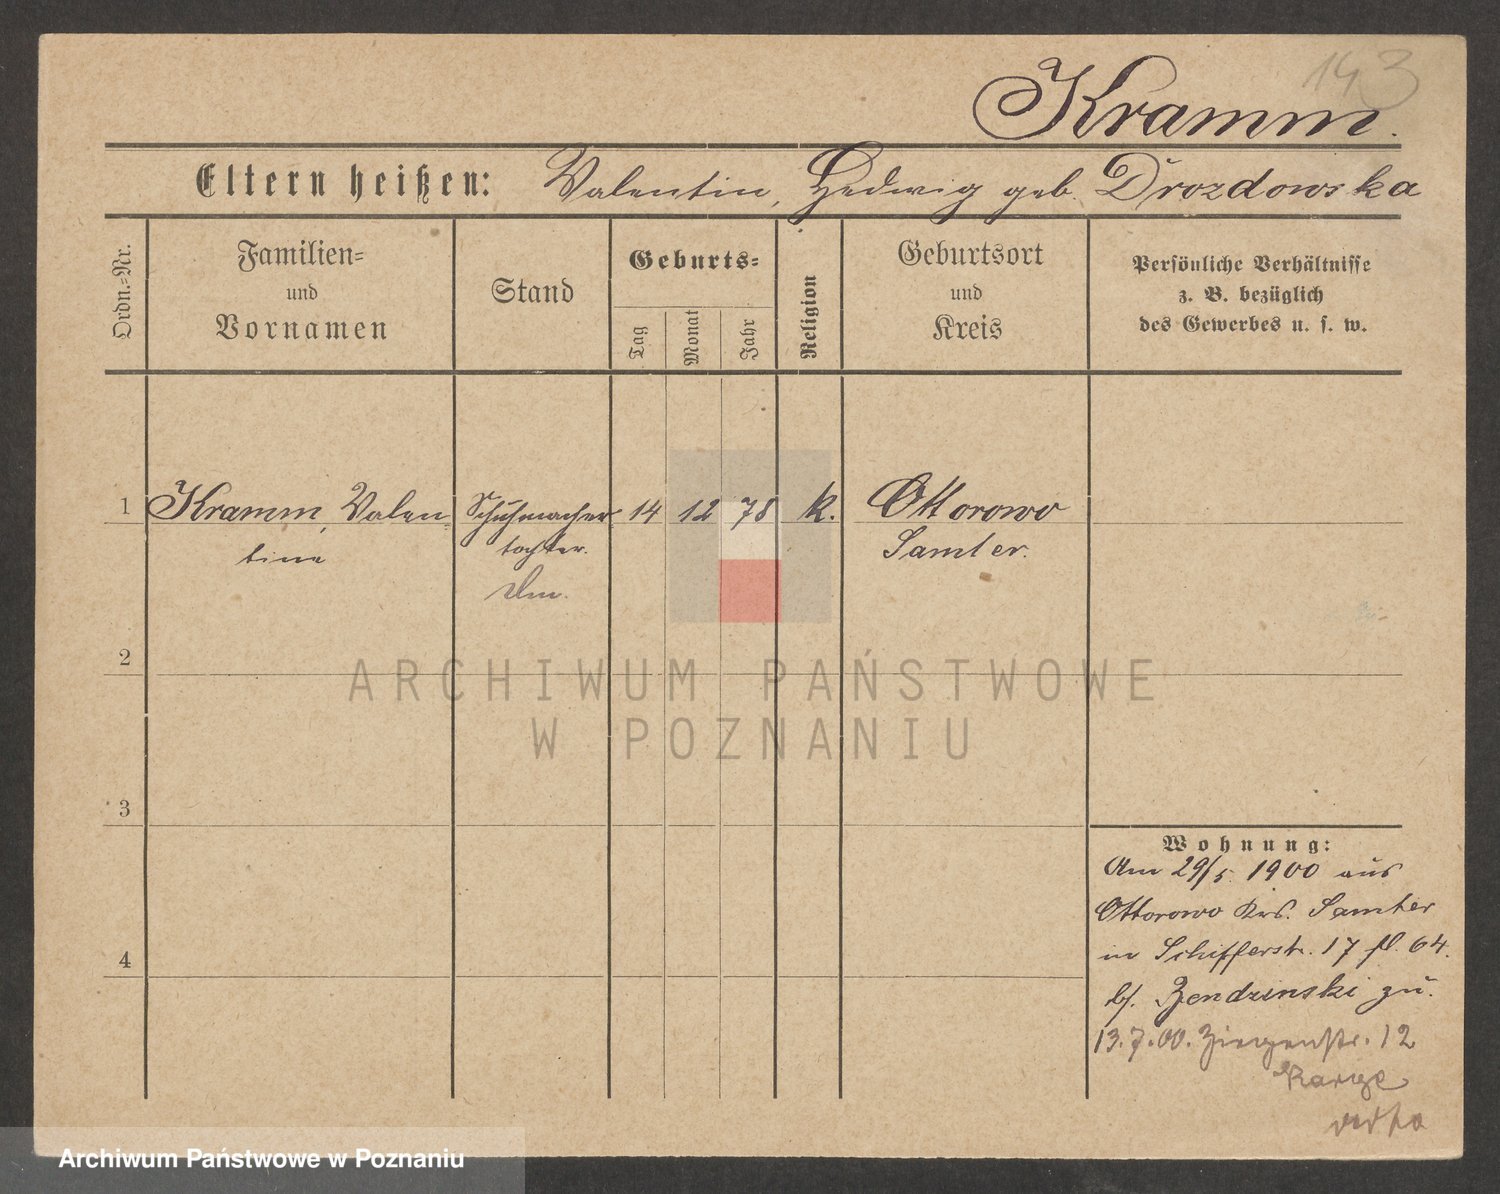 143
Kramm.
Eltern heißen: Valentin, Hedwig geb. Drozdowska
Ordn.-Nr.
Familien-
und
Vornamen
Stand
Geburts-
Tag
Monat
Jahr
Religion
Geburtsort
und
Kreis
Persönliche Verhältnisse
z. B. bezüglich
des Gewerbes u. s. w.
1 Kramm, Valen- Schuhmacher 14 12 78 k. Ottorowo
tine tochter. Samter.
2
ARCHIWUM PAŃSTWOWE
W POZNANIU
3
Wohnung:
Am 29/5. 1900 aus
Ottorowo Krs. Samter
in Schifferstr. 17 fl. 64.
4
b/. Zendzinski zu.
13.7.00. Ziegenstr. 12
verta
Archiwum Państwowe w Poznaniu